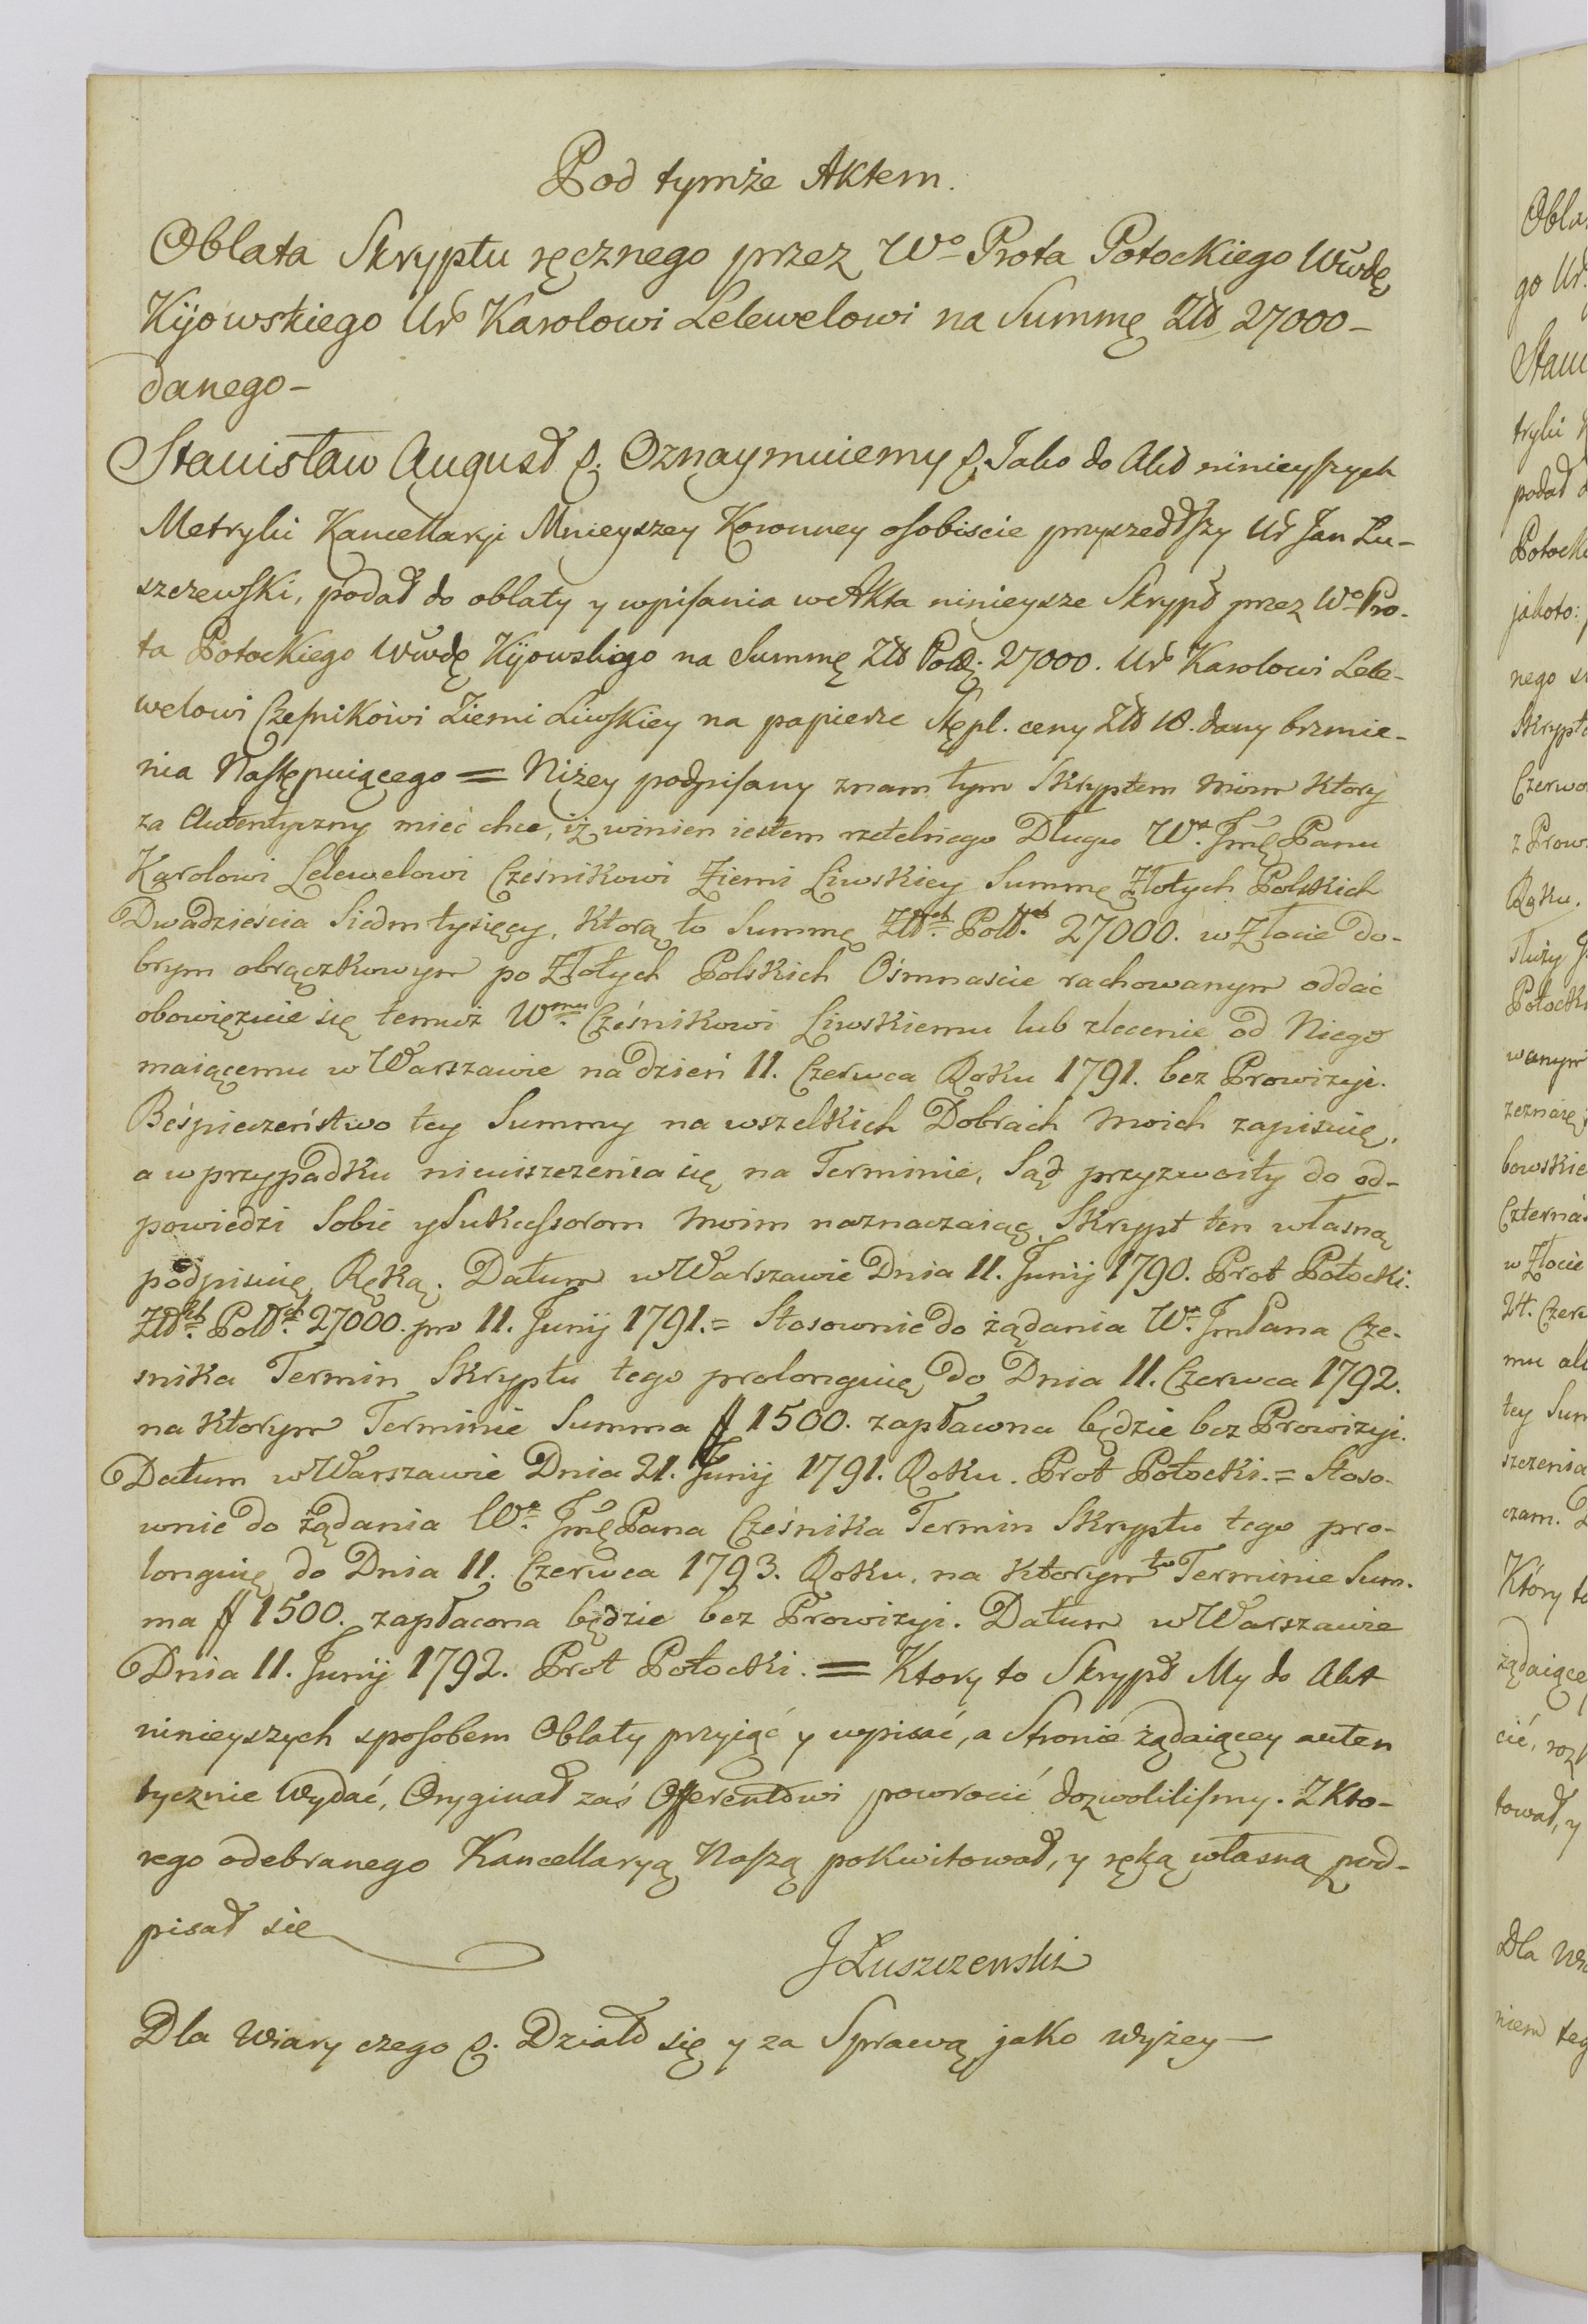 Pod tymże Aktem.
Oblata Skryptu ręcznego przez Wo Prota Potockiego Wwdę
Kijowskiego Ur Karolowi Lelewelowi na Summę Złł 27000 –
danego –
Stanisław August &. Oznaymuiemy &. Jako do Akt ninieyszych
Metryki Kancellaryi Mnieyszey Koronney osobiscie przyszedłszy Ur Jan Łu-
szczewski, podał do oblaty y wpisania w Akta ninieysze Skrypt przez Wo Pro-
ta Potockiego Wwdę Kijowskiego na Summę Złł Poll. 27000. Ur Karolowi Lele-
welowi Czesnikowi Ziemi Liwskiey na papierze Stępl. ceny Złł 18. dany brzmie-
nia Następuiącego = Niżey podpisany znam tym Skryptem moim ktory
za Autentyczny mieć chce, iż winien iestem rzetelnego Długu We. Jmę Panu
Karolowi Lelewelowi Cześnikowi Ziemi Liwskiey Summę Złotych Polskich
Dwadzieścia Siedm tysięcy, ktorą to Summę Złłch. Pollch. 27000. w Złocie do-
brym obrączkowym po Złotych Polskich Ośmnascie rachowanym oddać
obowięzuie się temuż Wmu. Cześnikowi Liwskiemu lub zlecenie od Niego
maiącemu w Warszawie na dzień 11. Czerwca Roku 1791. bez Prowizyi.
Beśpieczeństwo tey Summy na wszelkich Dobrach moich zapisuię,
a w przypadku nieuiszczenia się na Terminie, Sąd przyzwoity do od-
powiedzi Sobie y Sukcessorom moim naznaczaiąc, Skrypt ten własną
podpisuię Ręką. Datum w Warszawie Dnia 11. Junij 1790. Prot Potocki.
Złłch. Pollch. 27000. pro 11. Junij 1791. = Stosownie do żądania We. JmPana Cze-
snika Termin Skryptu tego prolonguię do Dnia 11. Czerwca 1792.
na ktorym Terminie Summa # 1500. zapłacona będzie bez Prowizyi.
Datum w Warszawie Dnia 21. Junij 1791. Roku. Prot Potocki. = Stoso-
wnie do żądania We. Jmę Pana Cześnika Termin Skryptu tego pro-
longuię do Dnia 11. Czerwca 1793. Roku, na ktorym to Terminie Sum-
ma # 1500. zapłacona będzie bez Prowizyi. Datum w Warszawie
Dnia 11. Junij 1792. Prot Potocki. = Ktory to Skrypt My do Akt
ninieyszych sposobem Oblaty przyiąć y wpisać, a Stronie żądaiącey auten
tycznie Wydać, Oryginał zaś Offerentowi powrocić dozwolilismy. Z Kto-
rego odebranego Kancellaryą Naszą pokwitował, y ręką własną pod-
pisał się
JŁuszczewski
Dla Wiary czego &. Działo się y za Sprawą jako wyżey –